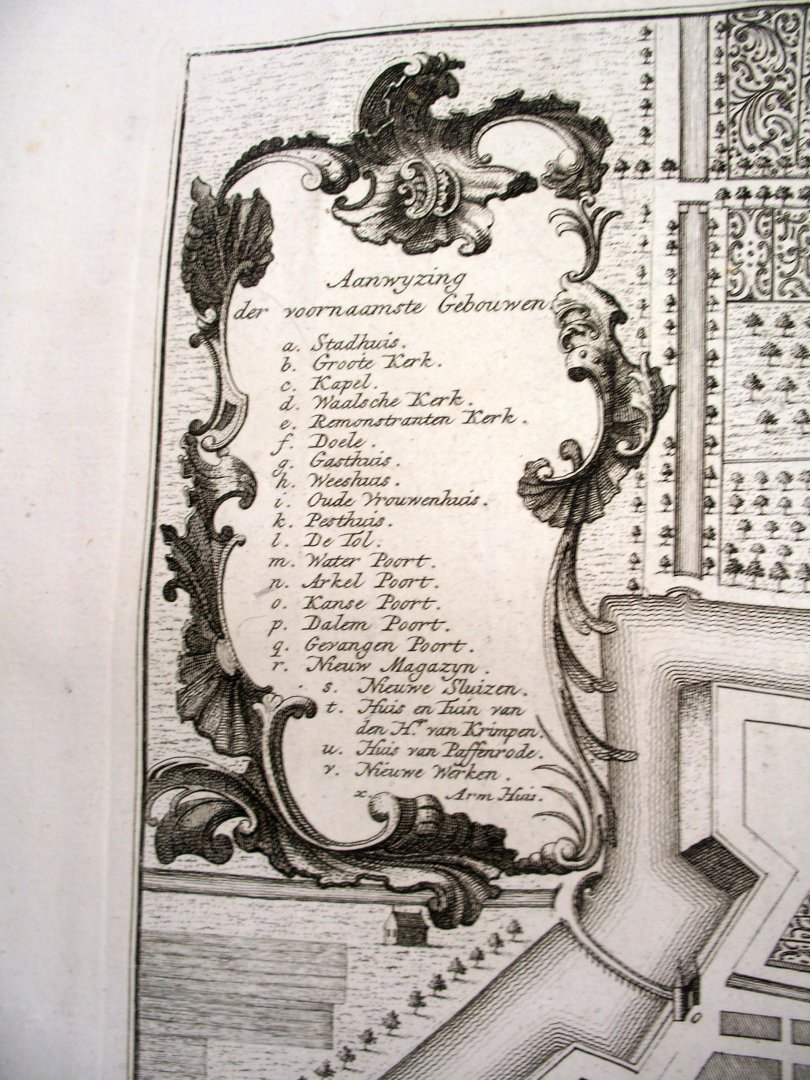 Aanwyzing
der voornaamste Gebouwen
a. Stadhuis.
b. Groote Kerk.
c. Kapel.
d. Waalsche Kerk.
e. Remonstranten Kerk.
f. Doele.
g. Gasthuis.
h. Weeshuis.
i. Oude Vrouwenhuis.
k. Pesthuis.
l. De Tol.
m. Water Poort.
n. Arkel Poort.
o. Kanse Poort.
p. Dalem Poort.
q. Gevangen Poort.
r. Nieuw Magazyn.
s. Nieuwe Sluizen.
t. Huis en Tuin van
den Hr. van Krimpen.
u. Huis van Paffenrode.
v. Nieuwe Werken.
x. Arm Huis.
o